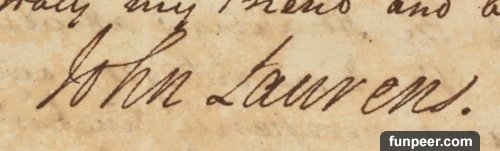 my Friend and
John Laurens.
funpeer.com